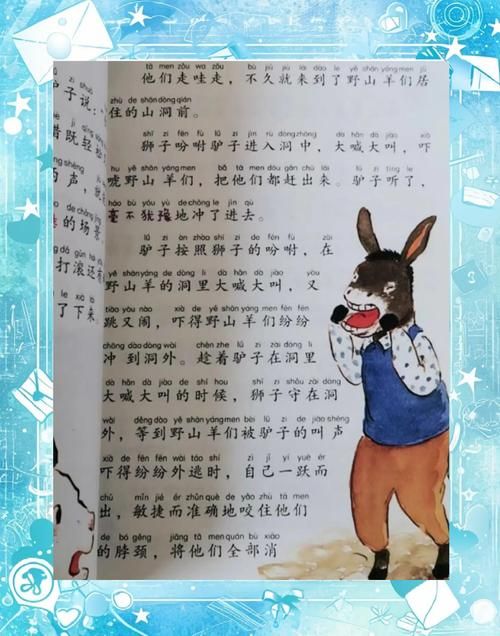 zi shuō
驴子说：
声，就
chǎng jǐng
的场景
打滚还有
le xià lái
了下来
tā men zǒu wa zǒu bù jiǔ jiù lái dào le yě shān yáng men jū
他们走哇走，不久就来到了野山羊们居
zhù de shān dòng qián
住的山洞前。
shī zi fēn fù lǘ zi jìn rù dòng zhōng dà hǎn dà jiào xià
狮子吩咐驴子进入洞中，大喊大叫，吓
hu yě shān yáng men bǎ tā men dōu gǎn chū lái lǘ zi tīng le
唬野山羊们，把他们都赶出来。驴子听了，
háo bù yóu yù de chōng le jìn qù
毫不犹豫地冲了进去。
lǘ zi àn zhào shī zi de fēn fù zài
驴子按照狮子的吩咐，在
yě shān yáng de dòng lǐ dà hǎn dà jiào yòu
野山羊的洞里大喊大叫，又
tiào yòu nào xià dé yě shān yáng men fēn fēn
跳又闹，吓得野山羊们纷纷
chōng dào dòng wài chèn zhe lǘ zi zài dòng lǐ
冲到洞外。趁着驴子在洞里
dà hǎn dà jiào de shí hou shī zi shǒu zài dòng
大喊大叫的时候，狮子守在洞
wài děng dào yě shān yáng men bèi lǘ zi de jiào shēng
外，等到野山羊们被驴子的叫声
xià de fēn fēn wài táo shí zì jǐ yí yuè ér
吓得纷纷外逃时，自己一跃而
chū mǐn jié ér zhǔn què de yǎo zhù tā men
出，敏捷而准确地咬住他们
de bó gěng jiāng tā men quán bù xiāo
的脖颈，将他们全部消